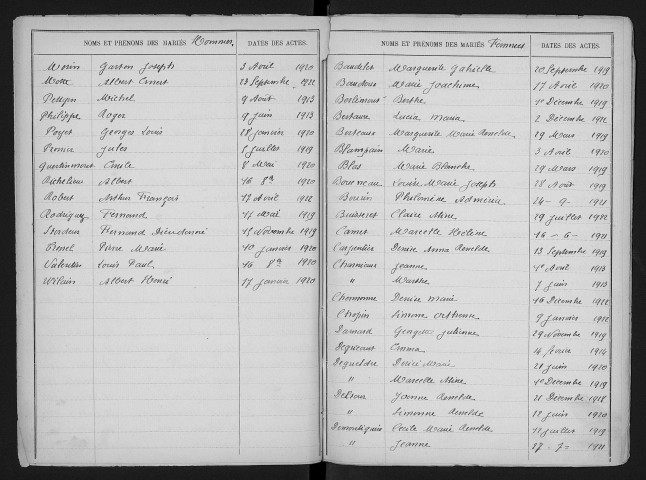 NOMS ET PRÉNOMS DES MARIÉS Hommes DATES DES ACTES.
Morin Gaston Joseph 3 Avril 1920
Motte Albert Ernest 23 Septembre 1922
Michel 9 Août 1913
Philippe Roger 9 juin 1913
Poyet Georges Louis 28 janvier 1920
Jules 5 juillet 1919
Quertinmont Emile 8 Mai 1920
Richelieu Albert 16 8bre 1920
Robert Arthur François 17 Avril 1922
Rodriguez Fernand 17 Mai 1919
Fernand Dieudonné 15 Novembre 1919
Pierre Marie 10 janvier 1920
Valentin Louis Paul 16 8bre 1920
Wilain Albert Henri 17 janvier 1920
NOMS ET PRÉNOMS DES MARIÉS Femmes DATES DES ACTES.
Baudelet Marguerite Gabrielle 20 Septembre 1919
Baudoux Marie Joachime 17 Avril 1920
Berlemont Berthe 1er Décembre 1919
Bertaux Lucia Maria 2 Décembre 1922
Berteaux Marguerite Marie 29 Mars 1919
Blampain Marie 3 Avril 1920
Blas Marie Blanche 29 Mars 1919
Bourneau Louise Marie Joseph 28 Août 1919
Philomène 24 - 9 - 1921
Claire Aline 29 juillet 1922
Cannet Marcelle Hélène 16 - 6 - 1921
Carpentier Denise Anna 13 Septembre 1919
Jeanne 1er Avril 1913
" Marthe 7 juin 1913
Charbonne Denise Marie 16 Décembre 1922
Chopin Simone 9 janvier 1922
Damard Georgette Julienne 29 Novembre 1919
Emma 14 février 1914
Marie 21 juin 1920
" Marcelle Aline 1er Décembre 1919
Jeanne 21 Décembre 1918
" Simonne 12 juin 1920
Cécile Marie 12 juillet 1919
" Jeanne 27 - 7 - 1921